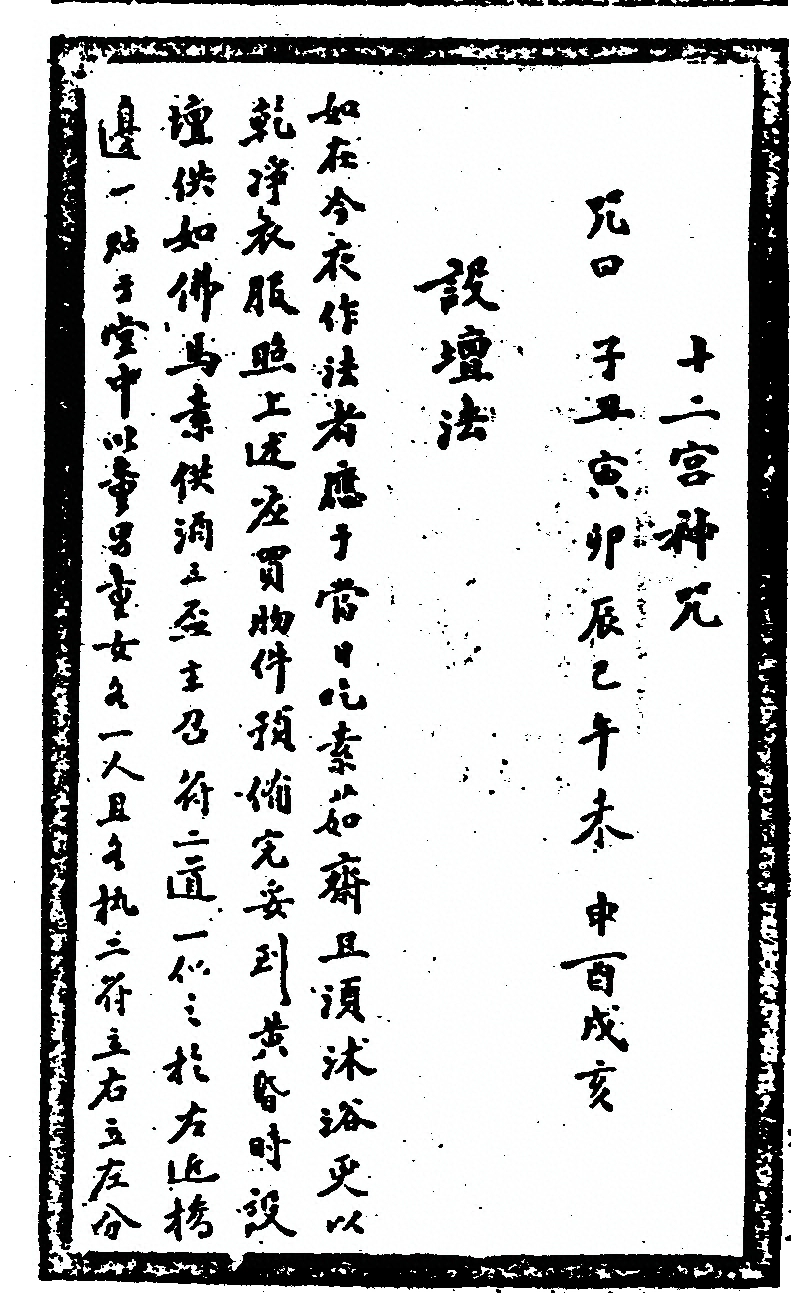 十二宮神咒
咒曰 子丑寅卯辰巳午未 申酉戌亥
設壇法
如在今夜作法者應于當日吃素茹齋且須沐浴更以
乾淨衣服照上述應買物件預備完妥到黃昏時設
壇供如佛馬素供酒三盃主召符二道一化之於右近橋
邊一貼于堂中以童男童女各一人且各执二符立右立左分